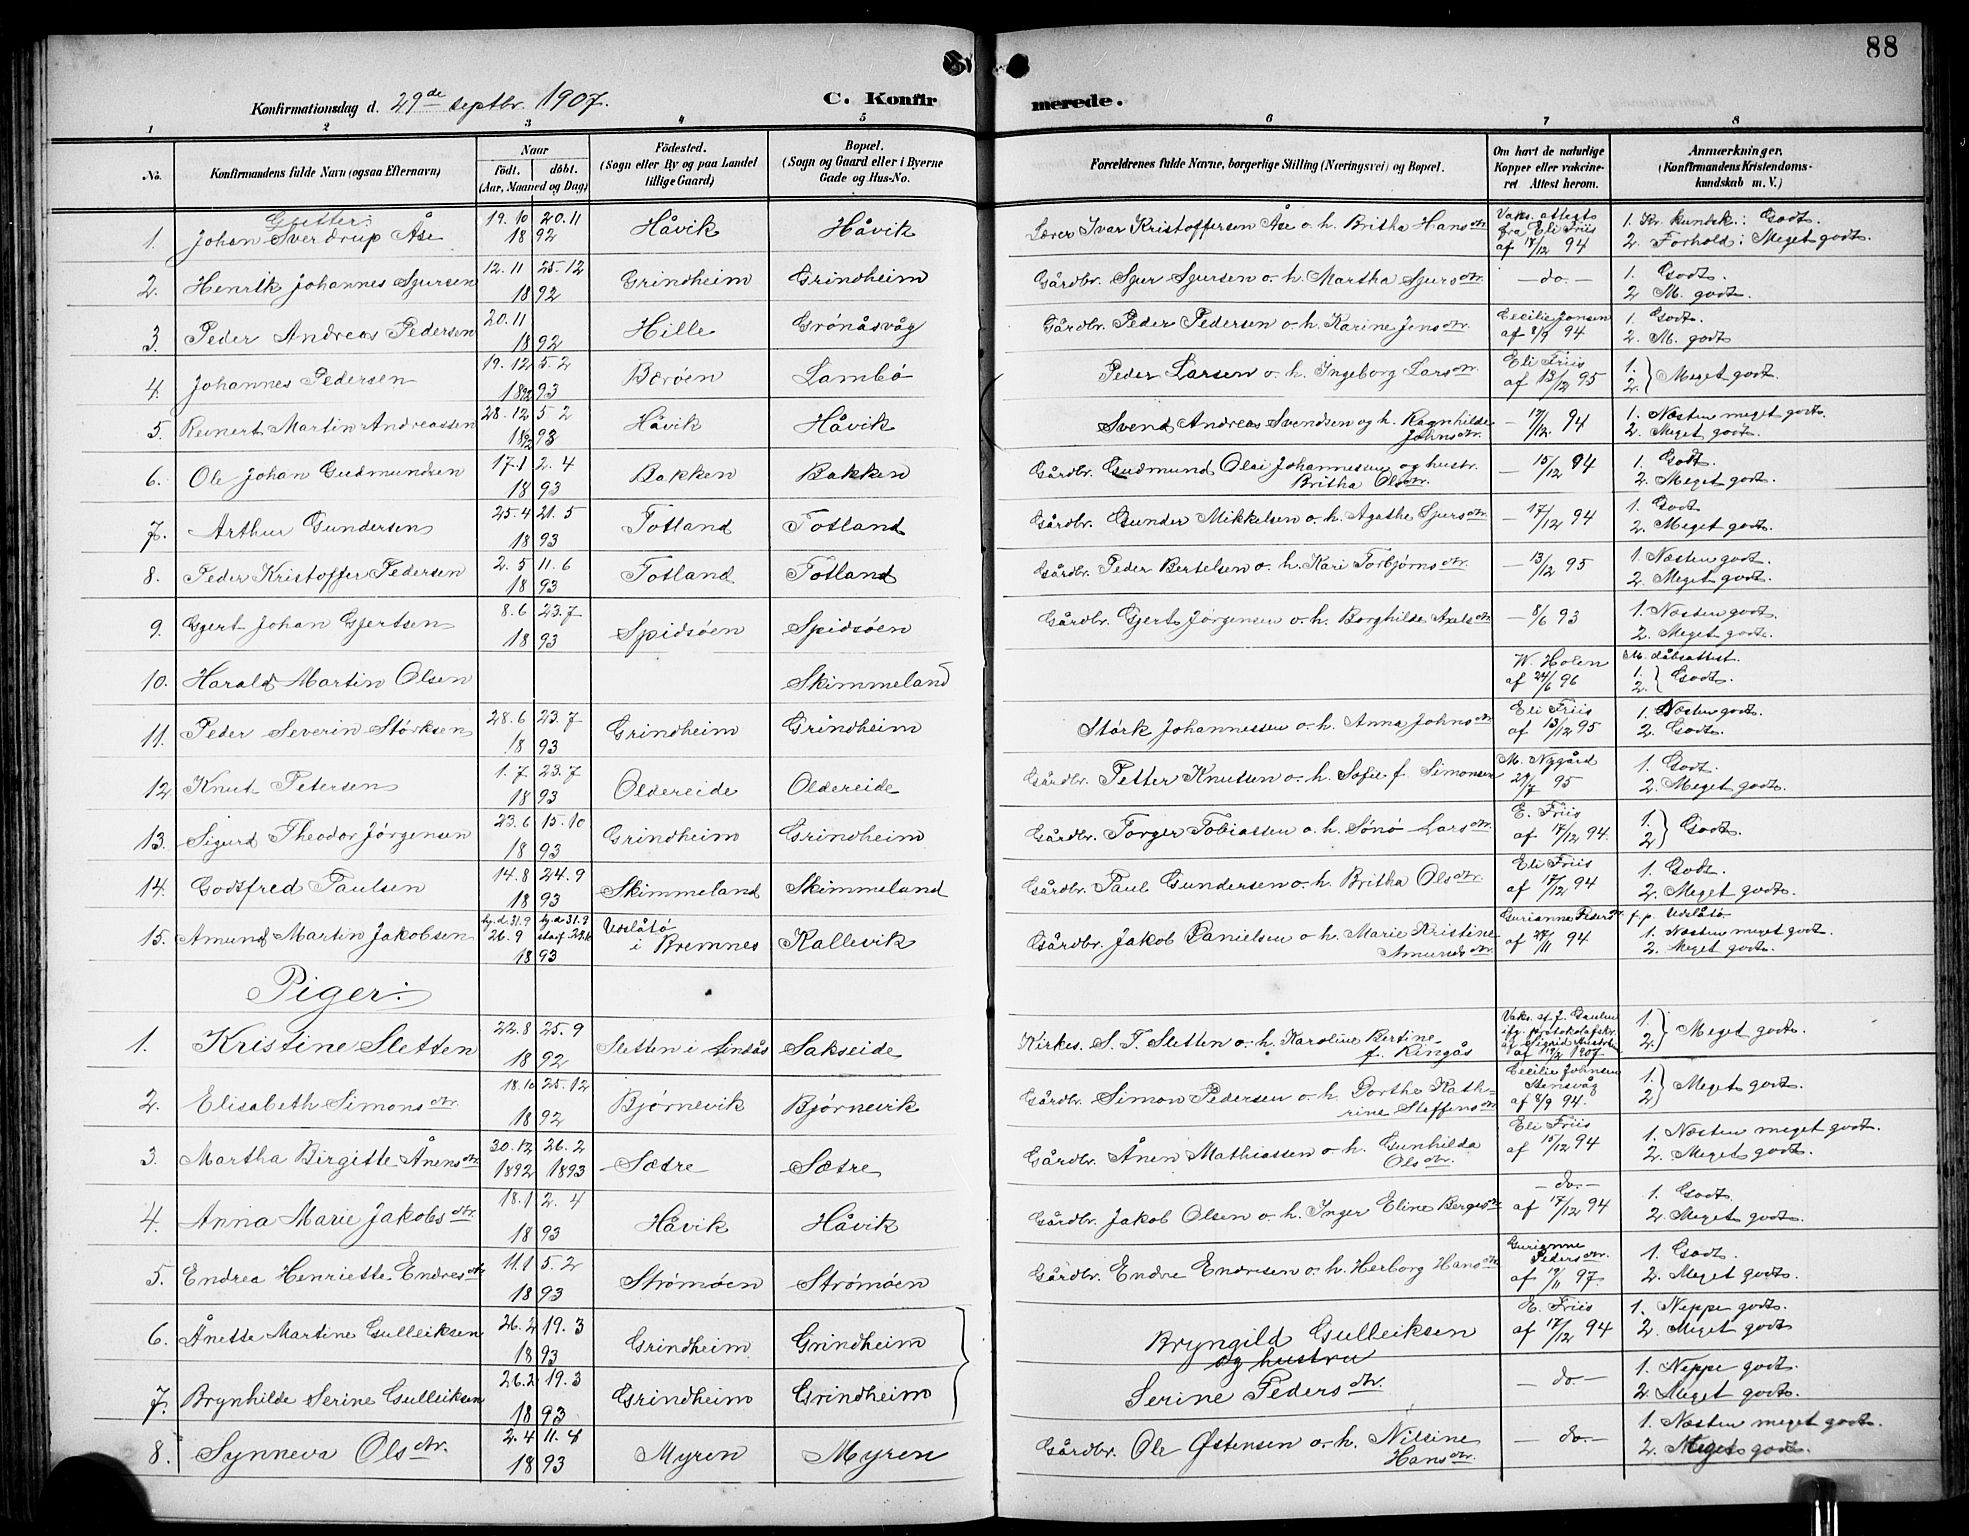 88
Konfirmationsdag d. 29de septbr. 1907. C. Konfirmerede.
1 2 3 4 5 6 7 8
No. Konfirmandens fulde Navn (ogsaa Efternavn) Naar født. døbt. (Aar, Maaned og Dag) Fødested. (Sogn eller By og paa Landet tillige Gaard) Bopæl. (Sogn og Gaard eller i Byerne Gade og Hus-No. Forældrenes fulde Navne, borgerlige Stilling (Næringsvei) og Bopæl. Om havt de naturlige Kopper eller vakcineret Attest herom. Anmærkninger. (Konfirmandens Kristendomskundskab m. V.)
Gutter:
1. Johan Sverdrup Åse 19.10 20.11 1892 Håvik Håvik Lærer Ivar Kristoffersen Åse o. h. Britha Hansdtr. Vaks. attest fra Eli Friis af 17/12 94 1. Kr. kundsk.: Godt. 2. Forhold: Meget godt.
2. Henrik Johannes Sjursen 12.11 25.12 1892 Grindheim Grindheim Gårdbr. Sjur Sjursen o. h. Martha Sjursdtr. — do. — 1. Godt. 2. M. godt.
3. Peder Andreas Pedersen 20.11 1892 Hille Grønåsvåg Gårdbr. Peder Pedersen o. h. Karine Jensdtr. Cecilie Jonsen af 8/9 94 1. Godt. 2. M. godt
4. Johannes Pedersen 19.12 5.2 1892 93 Bærøen Lambø Peder Larsen o. h. Ingeborg Larsdtr. Eli Friis af 13/12 95 1. 2. } Meget godt.
5. Reinert Martin Andreassen 28.12 5 2 1892 93 Håvik Håvik Svend Andreas Svendsen og h. Ragnhilde Johnsdtr. — 17/12 94 1. Næsten meget godt. 2. Meget godt.
6. Ole Johan Gudmundsen 17.1 2.4 1893 Bakken Bakken Gårdbr. Gudmund Olai Johannesen og hustr. Britha Olsdtr. — 15/12 94 1. Godt. 2. Meget godt.
7. Arthur Gundersen 25.4 21.5 1893 Totland Totland Gårdbr. Gunder Mikkelsen o. h. Agathe Sjursdtr. — 17/12 94 1. Godt 2. Meget godt.
8. Peder Kristoffer Pedersen 2.5 11.6 1893 Totland Totland Gårdbr. Peder Bertelsen o. h. Kari Torbjørnsdtr. — 13/12 95 1. Næsten godt. 2. Meget godt.
9. Gjert Johan Gjertsen 8.6 23.7 1893 Spidsøen Spidsøen Gårdbr. Gjert Jørgensen o. h. Borghilde Axelsdtr. — 8/6 93 1. Næsten godt. 2. Meget godt.
10. Harald Martin Olsen Skimmeland W. Holen af 24/6 96 M. dåbsattest. 1. 2. } Godt.
11. Peder Severin Størksen 28.6 23.7 1893 Grindheim Grindheim Størk Johannessen o. h. Anna Johnsdtr. Eli Friis af 13/12 95 1. Næsten godt. 2. Godt.
12 Knut Petersen 1.7 23.7 1893 Oldereide Oldereide Gårdbr. Petter Knutsen o. h. Sofie f. Simonsen M. Nygård 29/7 95 1. Godt. 2. Meget godt.
13. Sigurd Theodor Jørgensen 23.6 15.10 1893 Grindheim Grindheim Gårdbr. Torger Tobiassen o. h. Sønø Larsdtr. E. Friis af 17/12 94. 1. 2 } Godt.
14. Godtfred Paulsen 14.8 24.9 1893 Skimmeland Skimmeland Gårdbr. Paul Gundersen o. h. Britha Olsdtr. Eli Friis af 17/12 94 1. Godt. 2. Meget godt.
15. Amund Martin Jakobsen hj.d. 31.9 26.9 1893 i Bremnes Kallevik Gårdbr. Jakob Danielsen o. h. Marie Kristine Amundsdtr. Gurianne Pedersdtr. af 27/11 94 1. Næsten meget godt. 2. Meget godt.
Piger:
1. Kristine Sletten 22.8 25.9 1892 Sletten i Lindås Sakseide Kirkes. S. T. Sletten o. h. Karoline Bertine f. Ringås Vaks. af J. Paulsen ifg. protokolafskr. 1907. 1. 2. } Meget godt.
2. Elisabeth Simonsdtr. 18.10 25.12 1892 Bjørnevik Bjørnevik Gårdbr. Simon Pedersen o. h. Dorthe Kathrine Steffensdtr. Cecilie Johnsen Stensvåg af 8/9 94. 1. 2 } Meget godt.
3. Martha Birgitte Ånensdtr. 30.12 26.2 1892 1893 Sætre Sætre Gårdbr. Ånen Mathiassen o. h. Gunhilda Olsdtr. Eli Friis af 15/12 94 1. Næsten meget godt. 2. Meget godt.
4. Anna Marie Jakobsdtr. 18.1 2. 4 1893 Håvik Håvik Gårdbr. Jakob Olsen o. h. Inger Eline Bergesdtr. — do. — af 17/12 94 1. Godt. 2. Meget godt.
5. Endrea Henriette Endresdtr. 11.1 5.2 1893 Strømøen Strømøen Gårdbr. Endre Endresen o. h. Herborg Hansdtr. Gurianne Pedersdtr. af 19/11 97. 1. Godt. 2. Meget godt.
6. Ånette Martine Gulleiksen 26.2 19.3 1893 Grindheim Grindheim Bryngild Gulleiksen og hustru E. Friis af 17/12 94 1. Neppe godt. 2. Meget godt
7. Brynhilde Serine Gulleiksen 26.2 19.3 1893 Grindheim Grindheim Serine Pedersdtr. — do — 1. Neppe godt. 2. Meget godt.
8. Synneva Olsdtr. 2.4 11.4 1893 Myren Myren Gårdbr. Ole Østensen o. h. Nilsine Hansdtr. — do. — 1. Næsten meget godt. 2. Meget godt.